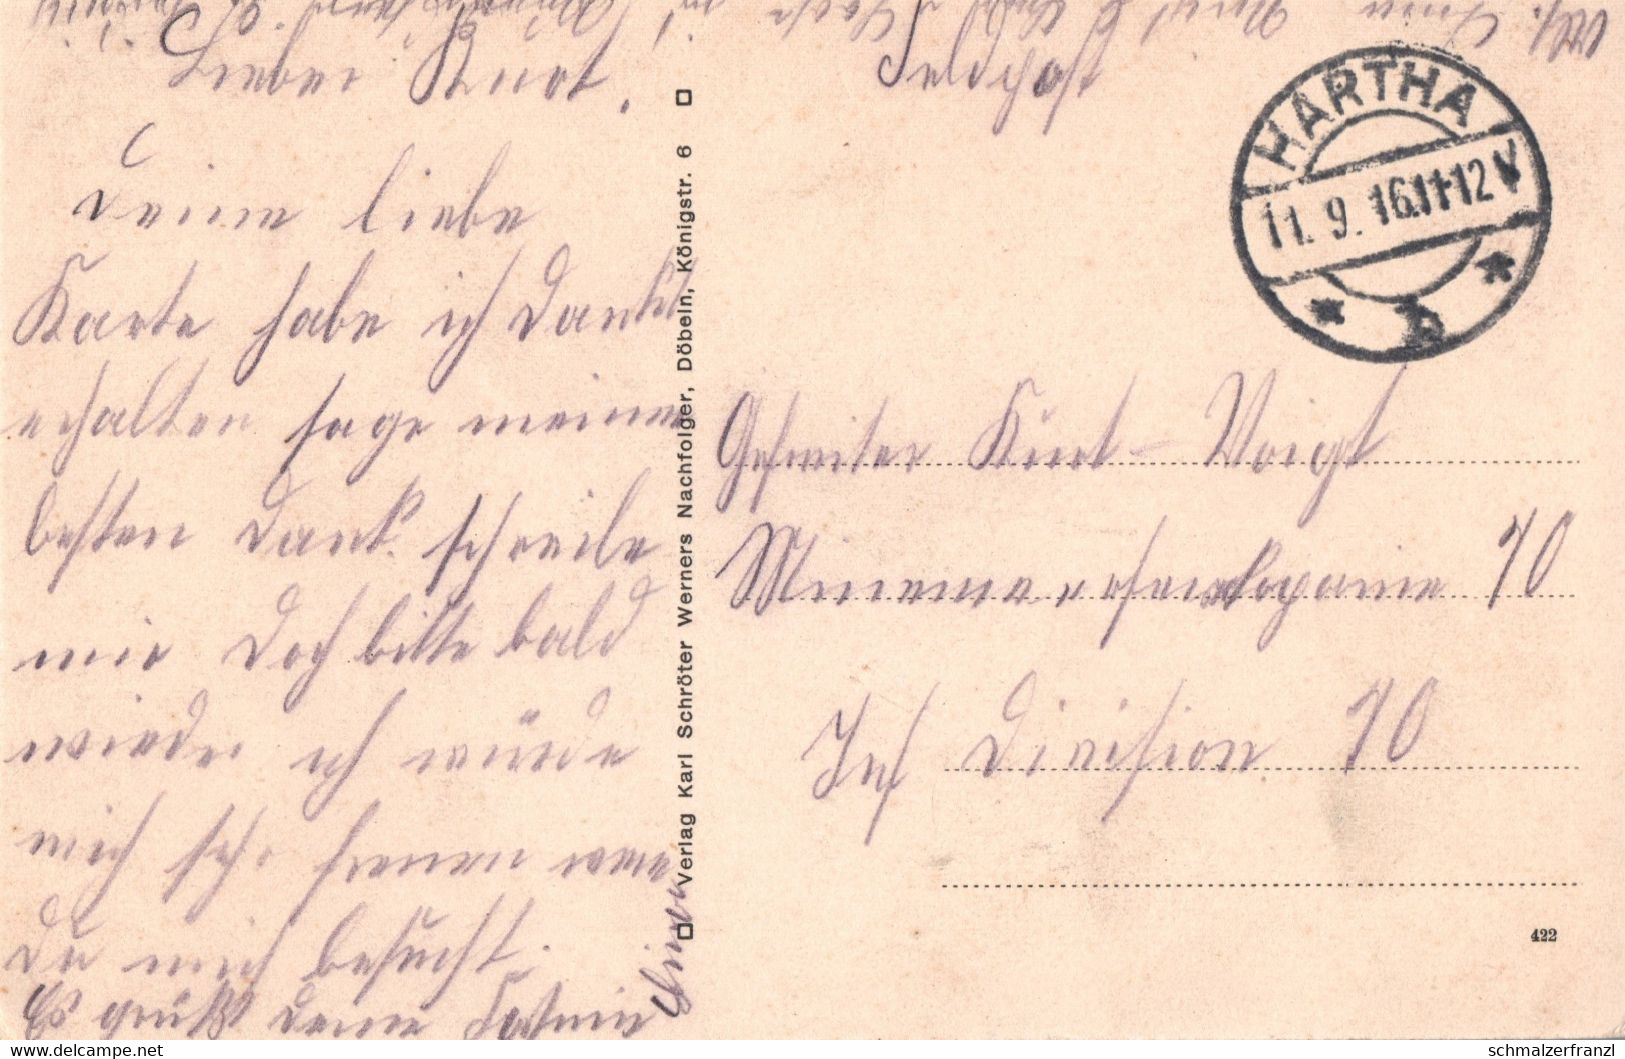 Lieber Kurt.
Deine liebe
Karte habe ich Dankt
erhalten sage meinen
besten Dank. schreibe
mir Doch bitte bald
wieder ich würde
mich sehr freuen wen
Du mich besucht.
Es grüßt deine
Feldpost
HARTHA
11. 9. 16. 11-12 V
* b *
Gefreiter Kurt Voigt
Minenwerferkopanie 40
Inf Division 40
Verlag Karl Schröter Werners Nachfolger, Döbeln, Königstr. 6
422
delcampe.net
schmalzerfranzl